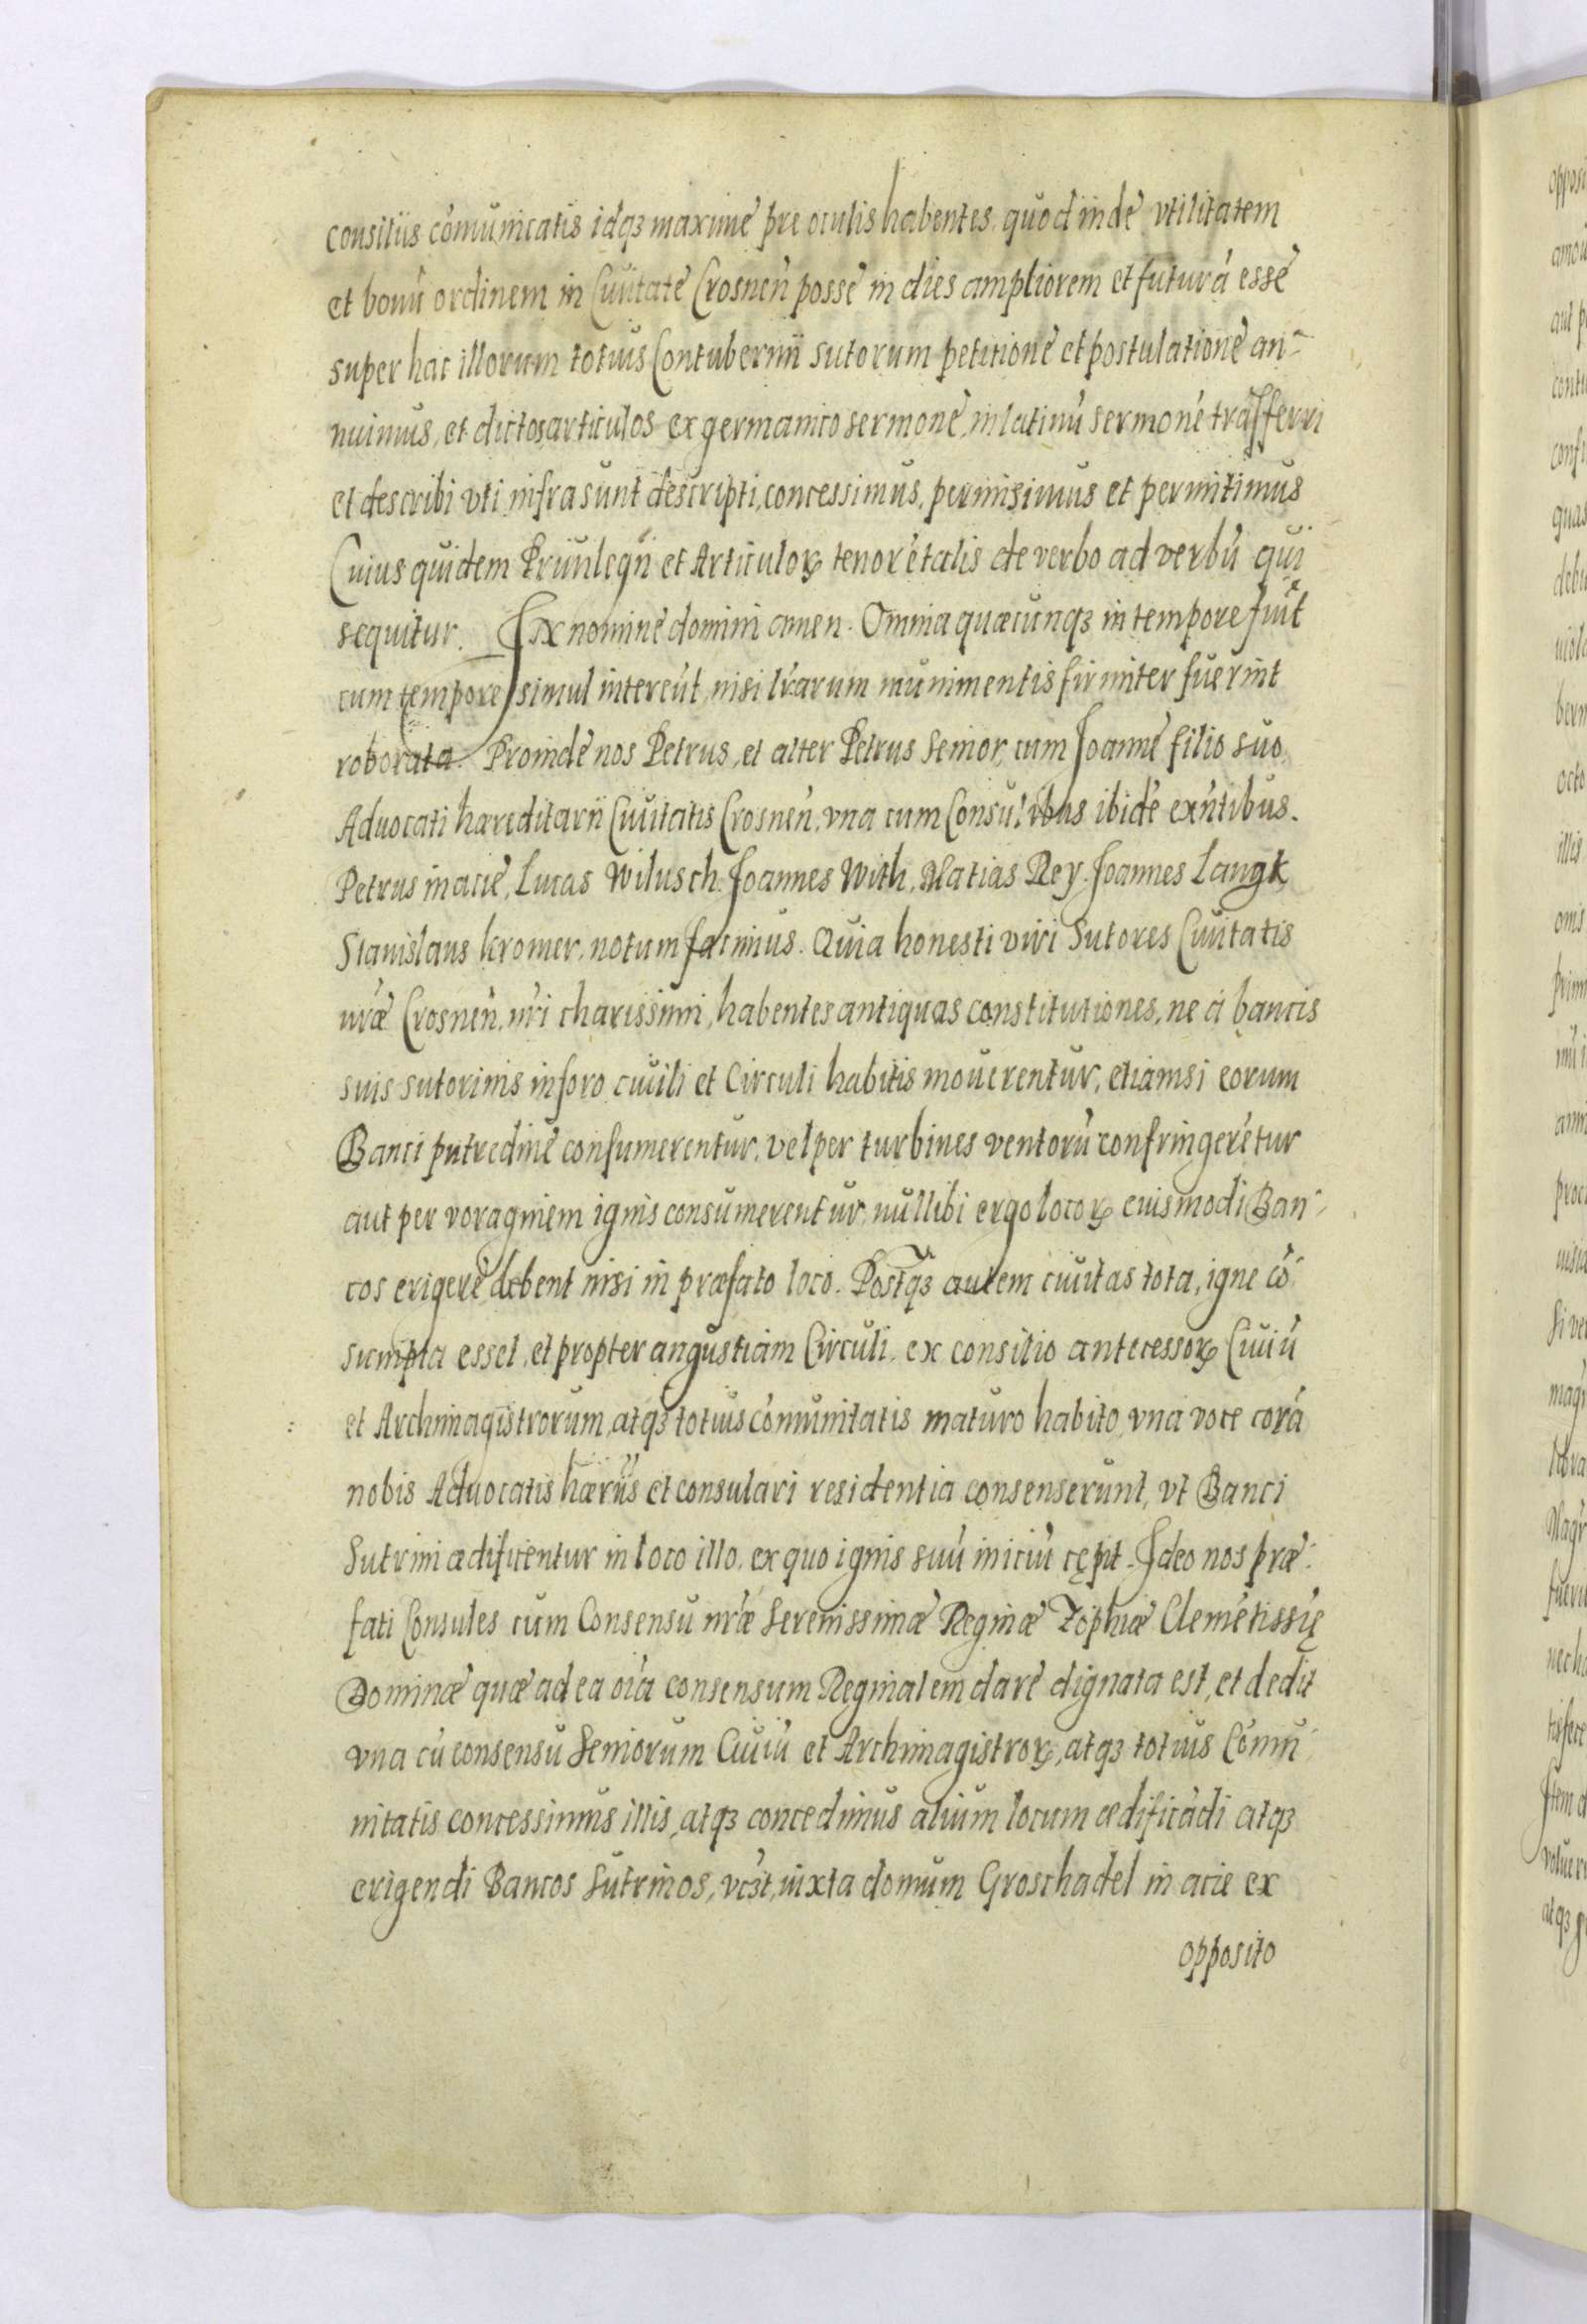 consiliis cōmunicatis idqꝫ maxime pre oculis habentes, quod inde vtilitatem
et bonū ordinem in Ciuitate Crosneñ posse in dies ampliorem et futurā esse
super hac illorum totius Contubernii sutorum petitione et postulatione an-
nuimus, et dictos articulos ex germanico sermone, in latinū sermonē trāsferri
et describi vti infra sunt descripti, concessimus, permisimus et permittimus
Cuius quidem Priuilegii et Articuloꝝ tenor ē talis de verbo ad verbū qui
sequitur. In nomine domini amen. Omnia quæcunqꝫ in tempore fiūt
cum tempore simul intereūt, nisi lr̃arum munimentis firmiter fuerint
roborata. Proinde nos Petrus, et alter Petrus Senior, cum Joanne filio suo,
Aduocati hæreditarii Ciuitatis Crosneñ, vna cum Consulibus ibidē exñtibus.
Petrus in acie, Lucas Wilusch. Joannes With, Matias Rey. Joannes Langk
Stanislaus kromer, notum facimus. Quia honesti viri Sutores Ciuitatis
nr̃æ Crosneñ, nr̃i charissimi, habentes antiquas constitutiones, ne à bancis
suis sutorinis in foro ciuili et Circuli habitis mouerentur, etiamsi eorum
Banci putredine consumerentur, vel per turbines ventorū confringerētur
aut per voraginem ignis consumerentur, nullibi ergo locoꝝ euismodi Ban-
cos erigere debent nisi in præfato loco. Postqꝫ autem ciuitas tota, igne cō-
sumpta esset, et propter angustiam Circuli, ex consilio antecessoꝝ Ciuiū
et Archimagistrorum, atqꝫ totius cōmunitatis maturo habito, vna voce corā
nobis Aduocatis hæriis et consulari residentia consenserunt, vt Banci
Sutrini ædificentur in loco illo, ex quo ignis suū iniciū cępit. Ideo nos præ-
fati Consules cum Consensu nr̃æ Serenissimæ Reginæ Zophiæ Clemētissię
Dominæ quæ ad ea oĩa consensum Reginalem dare dignata est, et dedit
vna cū consensu Seniorum Ciuiū et Archimagistroꝝ, atqꝫ totius Cōmu-
nitatis concessimus illis, atqꝫ concedimus alium locum ædificādi atqꝫ
erigendi Bancos Sutrinos, vcꝫt, iuxta domum Groschadel in acie ex
opposito